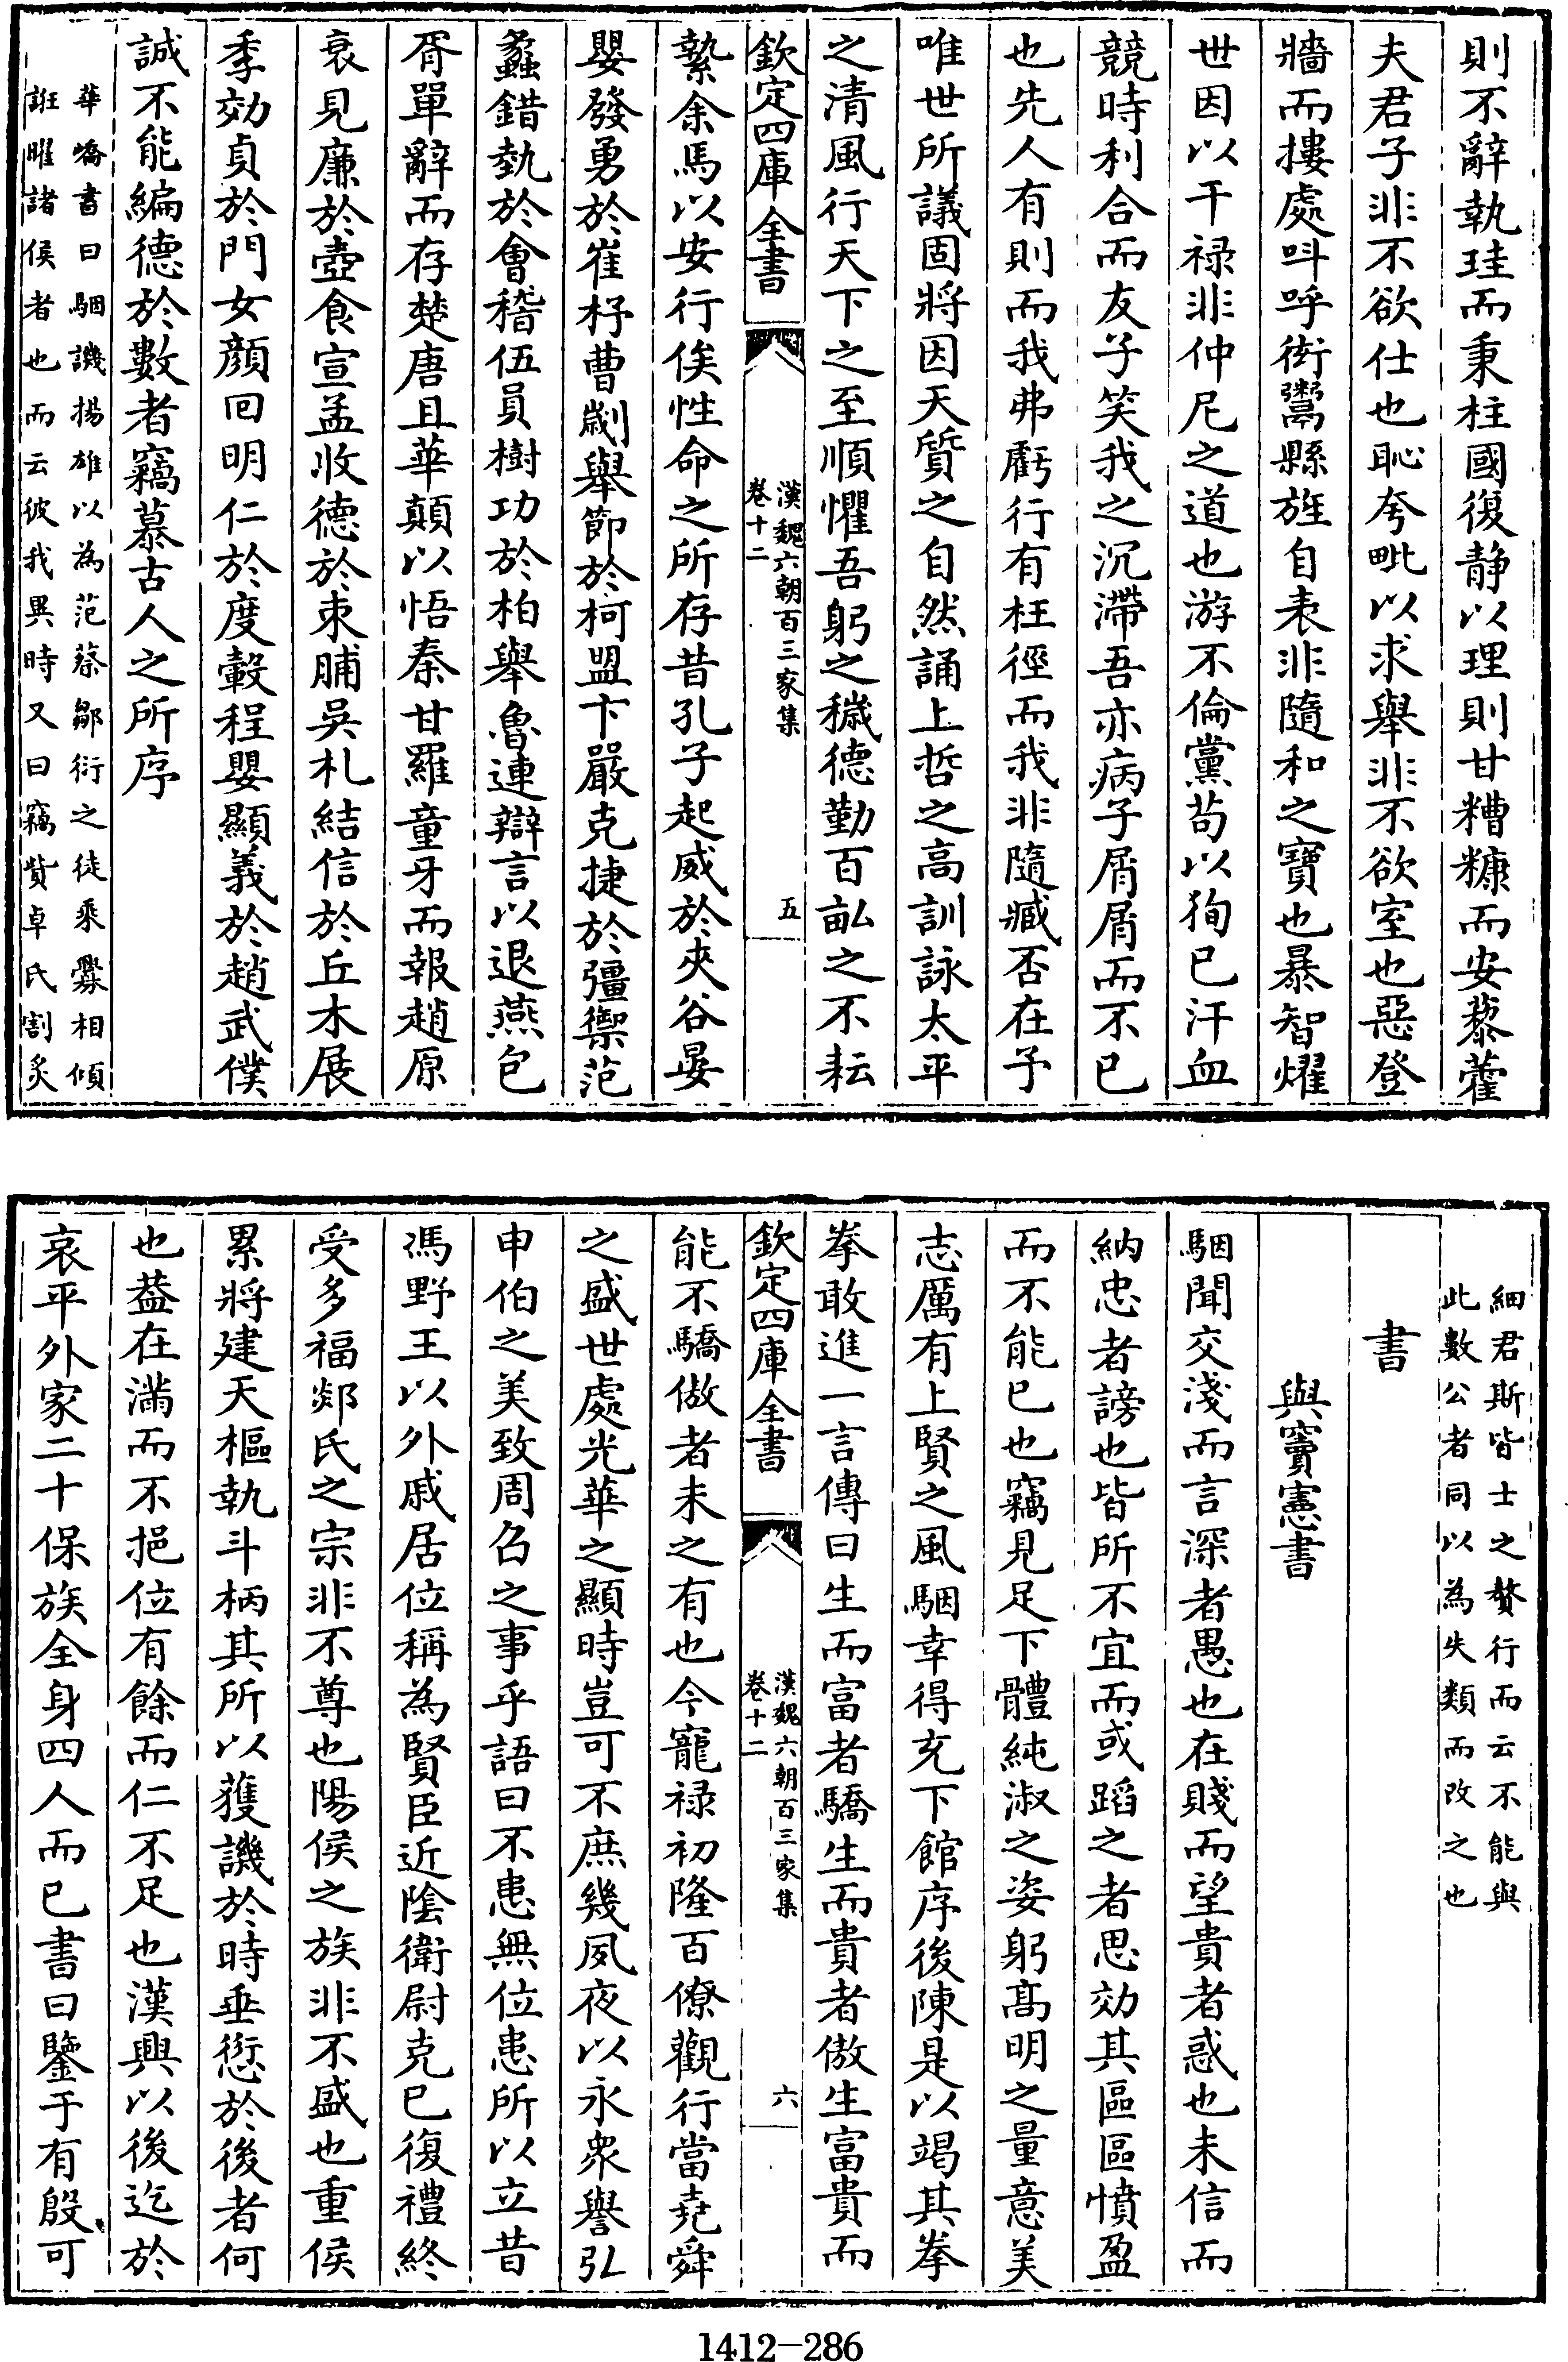 則不辭執珪而秉柱國復静以理則甘糟糠而安藜藿
夫君子非不欲仕也恥夸毗以求舉非不欲室也惡登
牆而摟處呌呼衒鬻縣旌自表非隨和之寶也暴智燿
世因以干禄非仲尼之道也游不倫黨苟以狥已汗血
競時利合而友子笑我之沉滯吾亦病子屑屑而不已
也先人有則而我弗虧行有枉徑而我非隨臧否在予
唯世所議固將因天質之自然誦上哲之高訓詠太平
之清風行天下之至順懼吾躬之穢德勤百畝之不耘
欽定四庫全書
漢魏六朝百三家集
卷十二
五
縶余馬以安行俟性命之所存昔孔子起威於夾谷晏
嬰發勇於崔杼曹劌舉節於柯盟卞嚴克捷於彊禦范
蠡錯埶於會稽伍員樹功於柏舉魯連辯言以退燕包
胥單辭而存楚唐且華顛以悟秦甘羅童牙而報趙原
衰見廉於壺食宣孟收德於束脯吳札結信於丘木展
季効貞於門女顔回明仁於度轂程嬰顯義於趙武僕
誠不能編德於數者竊慕古人之所序
華嶠書曰駰譏揚雄以為范蔡鄒衍之徒乘釁相傾
誑曜諸侯者也而云彼我異時又曰竊貲卓氏割炙
細君斯皆士之贅行而云不能與
此數公者同以為失類而改之也
書
與竇憲書
駰聞交淺而言深者愚也在賤而望貴者惑也未信而
納忠者謗也皆所不宜而或蹈之者思効其區區憤盈
而不能已也竊見足下體純淑之姿躬髙明之量意美
志厲有上賢之風駰幸得充下館序後陳是以竭其拳
拳敢進一言傳曰生而富者驕生而貴者傲生富貴而
欽定四庫全書
漢魏六朝百三家集
卷十二
六
能不驕傲者未之有也今寵禄初隆百僚觀行當堯舜
之盛世處光華之顯時豈可不庶幾夙夜以永衆譽弘
申伯之美致周召之事乎語曰不患無位患所以立昔
馮野王以外戚居位稱為賢臣近隂衛尉克已復禮終
受多福郯氏之宗非不尊也陽侯之族非不盛也重侯
累將建天樞執斗柄其所以獲譏於時垂愆於後者何
也葢在滿而不挹位有餘而仁不足也漢興以後迄於
哀平外家二十保族全身四人而已書曰鑒于有殷可
1412-286